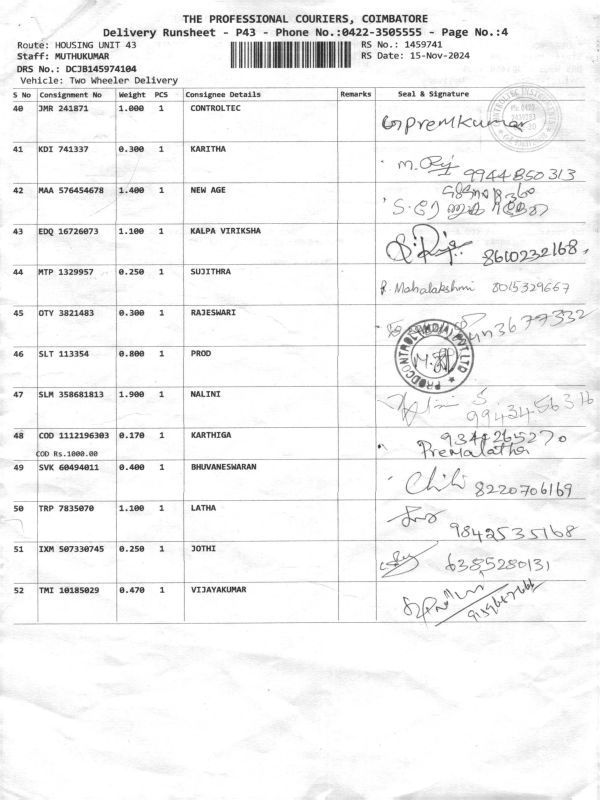 THE PROFESSIONAL COURIERS, COIMBATORE
Delivery Runsheet - P43 - Phone No.:0422-3505555 - Page No.:4
Route: HOUSING UNIT 43 RS No.: 1459741
Staff: MUTHUKUMAR RS Date: 15-Nov-2024
DRS No.: DCJB145974104
Vehicle: Two Wheeler Delivery
S No Consignment No Weight PCS Consignee Details Remarks Seal & Signature
40 JMR 241871 1.000 1 CONTROLTEC Premkumar
41 KDI 741337 0.300 1 KARITHA 9944850313
42 MAA 576454678 1.400 1 NEW AGE
43 EDQ 16726073 1.100 1 KALPA VIRIKSHA 8610232168.
44 MTP 1329957 0.250 1 SUJITHRA P. Mahalakshmi 8015329667
45 OTY 3821483 0.300 1 RAJESWARI
46 SLT 113354 0.800 1 PROD PRODCONTROL (INDIA) PVT LTD
47 SLM 358681813 1.900 1 NALINI 9943456316
48 COD 1112196303 0.170 1 KARTHIGA 9344265270
COD Rs.1000.00 Premalatha
49 SVK 60494011 0.400 1 BHUVANESWARAN 8220706169
50 TRP 7835070 1.100 1 LATHA 9842535168
51 IXM 507330745 0.250 1 JOTHI 6385280131
52 TMI 10185029 0.470 1 VIJAYAKUMAR